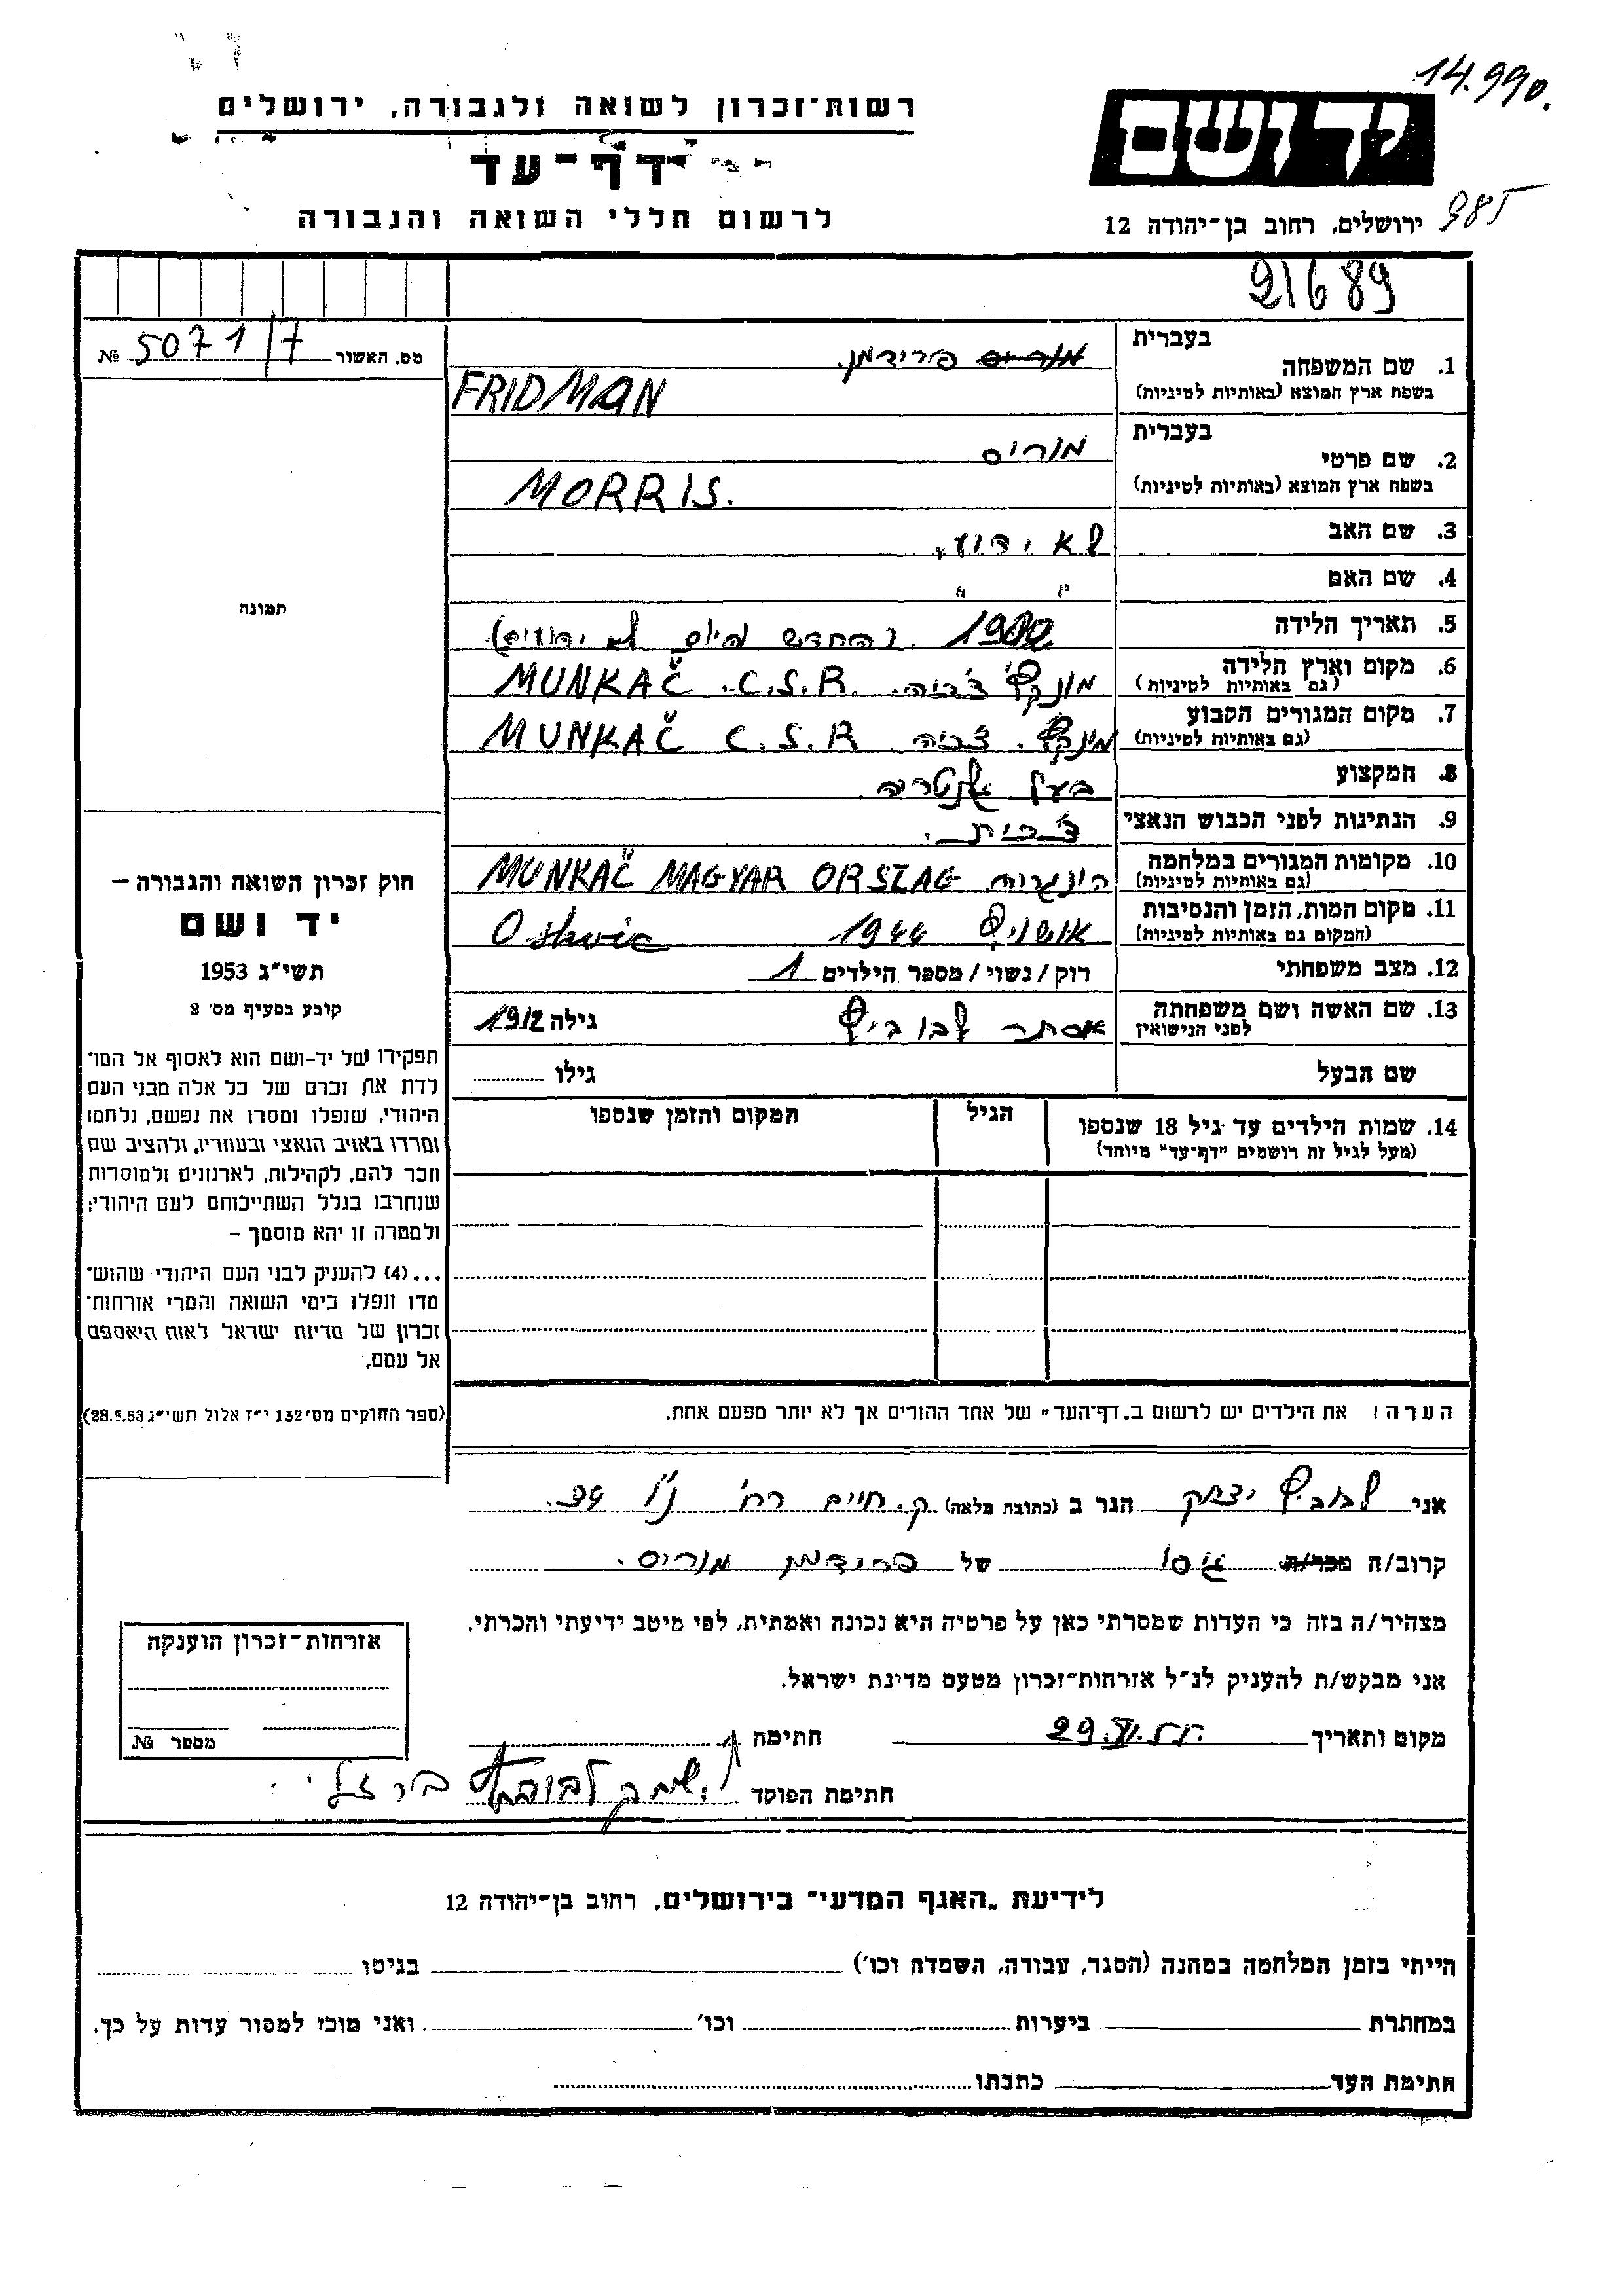 14.990.
רשות־זכרון לשואה ולגבורה, ירושלים
ידושם
דף־עד
985
לרשום חללי השואה והגבורה
ירושלים, רחוב בן־יהודה 12
21689
מס. האשור 5071/7 №
בעברית
1. שם המשפחה פרידמן.
בשפת ארץ המוצא (באותיות לטיניות) FRIDMAN
בעברית
2. שם פרטי מוריס
בשפת ארץ המוצא (באותיות לטיניות) MORRIS.
3. שם האב לא ידוע,
4. שם האם " "
תמונה
5. תאריך הלידה 1900 (החדש היום לא ידועים)
6. מקום וארץ הלידה מונקץ' צ'כיה. MUNKAČ .C.S.R.
(גם באותיות לטיניות)
7. מקום המגורים הקבוע מונקץ'. צ'כיה. MUNKAČ C.S.R
(גם באותיות לטיניות)
8. המקצוע בעל
9. הנתינות לפני הכבוש הנאצי צ'כית.
10. מקומות המגורים במלחמה הונגריה MUNKAČ MAGYAR ORSZAG
(גם באותיות לטיניות)
11. מקום המות, הזמן והנסיבות אושויץ 1944
(המקום גם באותיות לטיניות)
12. מצב משפחתי רוק/נשוי/מספר הילדים 1
13. שם האשה ושם משפחתה אסתר לבוביץ גילה 1912
לפני הנישואין
שם הבעל גילו
14. שמות הילדים עד גיל 18 שנספו הגיל המקום והזמן שנספו
(מעל לגיל זה רושמים "דף־עד" מיוחד)
חוק זכרון השואה והגבורה –
יד ושם
תשי"ג 1953
קובע בסעיף מס' 2
תפקידו של יד-ושם הוא לאסוף אל המו־
לדת את זכרם של כל אלה מבני העם
היהודי, שנפלו ומסרו את נפשם, נלחמו
ומרדו באויב הנאצי ובעוזריו, ולהציב שם
וזכר להם, לקהילות, לארגונים ולמוסדות
שנחרבו בגלל השתייכותם לעם היהודי;
ולמטרה זו יהא מוסמך –
...(4) להעניק לבני העם היהודי שהוש־
מדו ונפלו בימי השואה והמרי אזרחות־
זכרון של מדינת ישראל לאות היאספם
אל עמם.
(ספר החוקים מס' 132 י"ז אלול תשי"ג 28.8.53)
הערה: את הילדים יש לרשום ב„דף־העד" של אחד ההורים אך לא יותר מפעם אחת.
אני לבוביץ יצחק הגר ב (כתובת מלאה) ק. חיים רח'
קרוב/ה מכר/ה גיסו של פרידמן מוריס.
מצהיר/ה בזה כי העדות שמסרתי כאן על פרטיה היא נכונה ואמתית, לפי מיטב ידיעתי והכרתי.
אני מבקש/ת להעניק לנ"ל אזרחות־זכרון מטעם מדינת ישראל.
מקום ותאריך 29.VI. חתימה
חתימת הפוקד
אזרחות־זכרון הוענקה
מספר №
לידיעת „האגף המדעי" בירושלים, רחוב בן־יהודה 12
הייתי בזמן המלחמה במחנה (הסגר, עבודה, השמדה וכו') בגיטו
במחתרת ביערות וכו' ואני מוכן למסור עדות על כך,
חתימת העד כתבתו